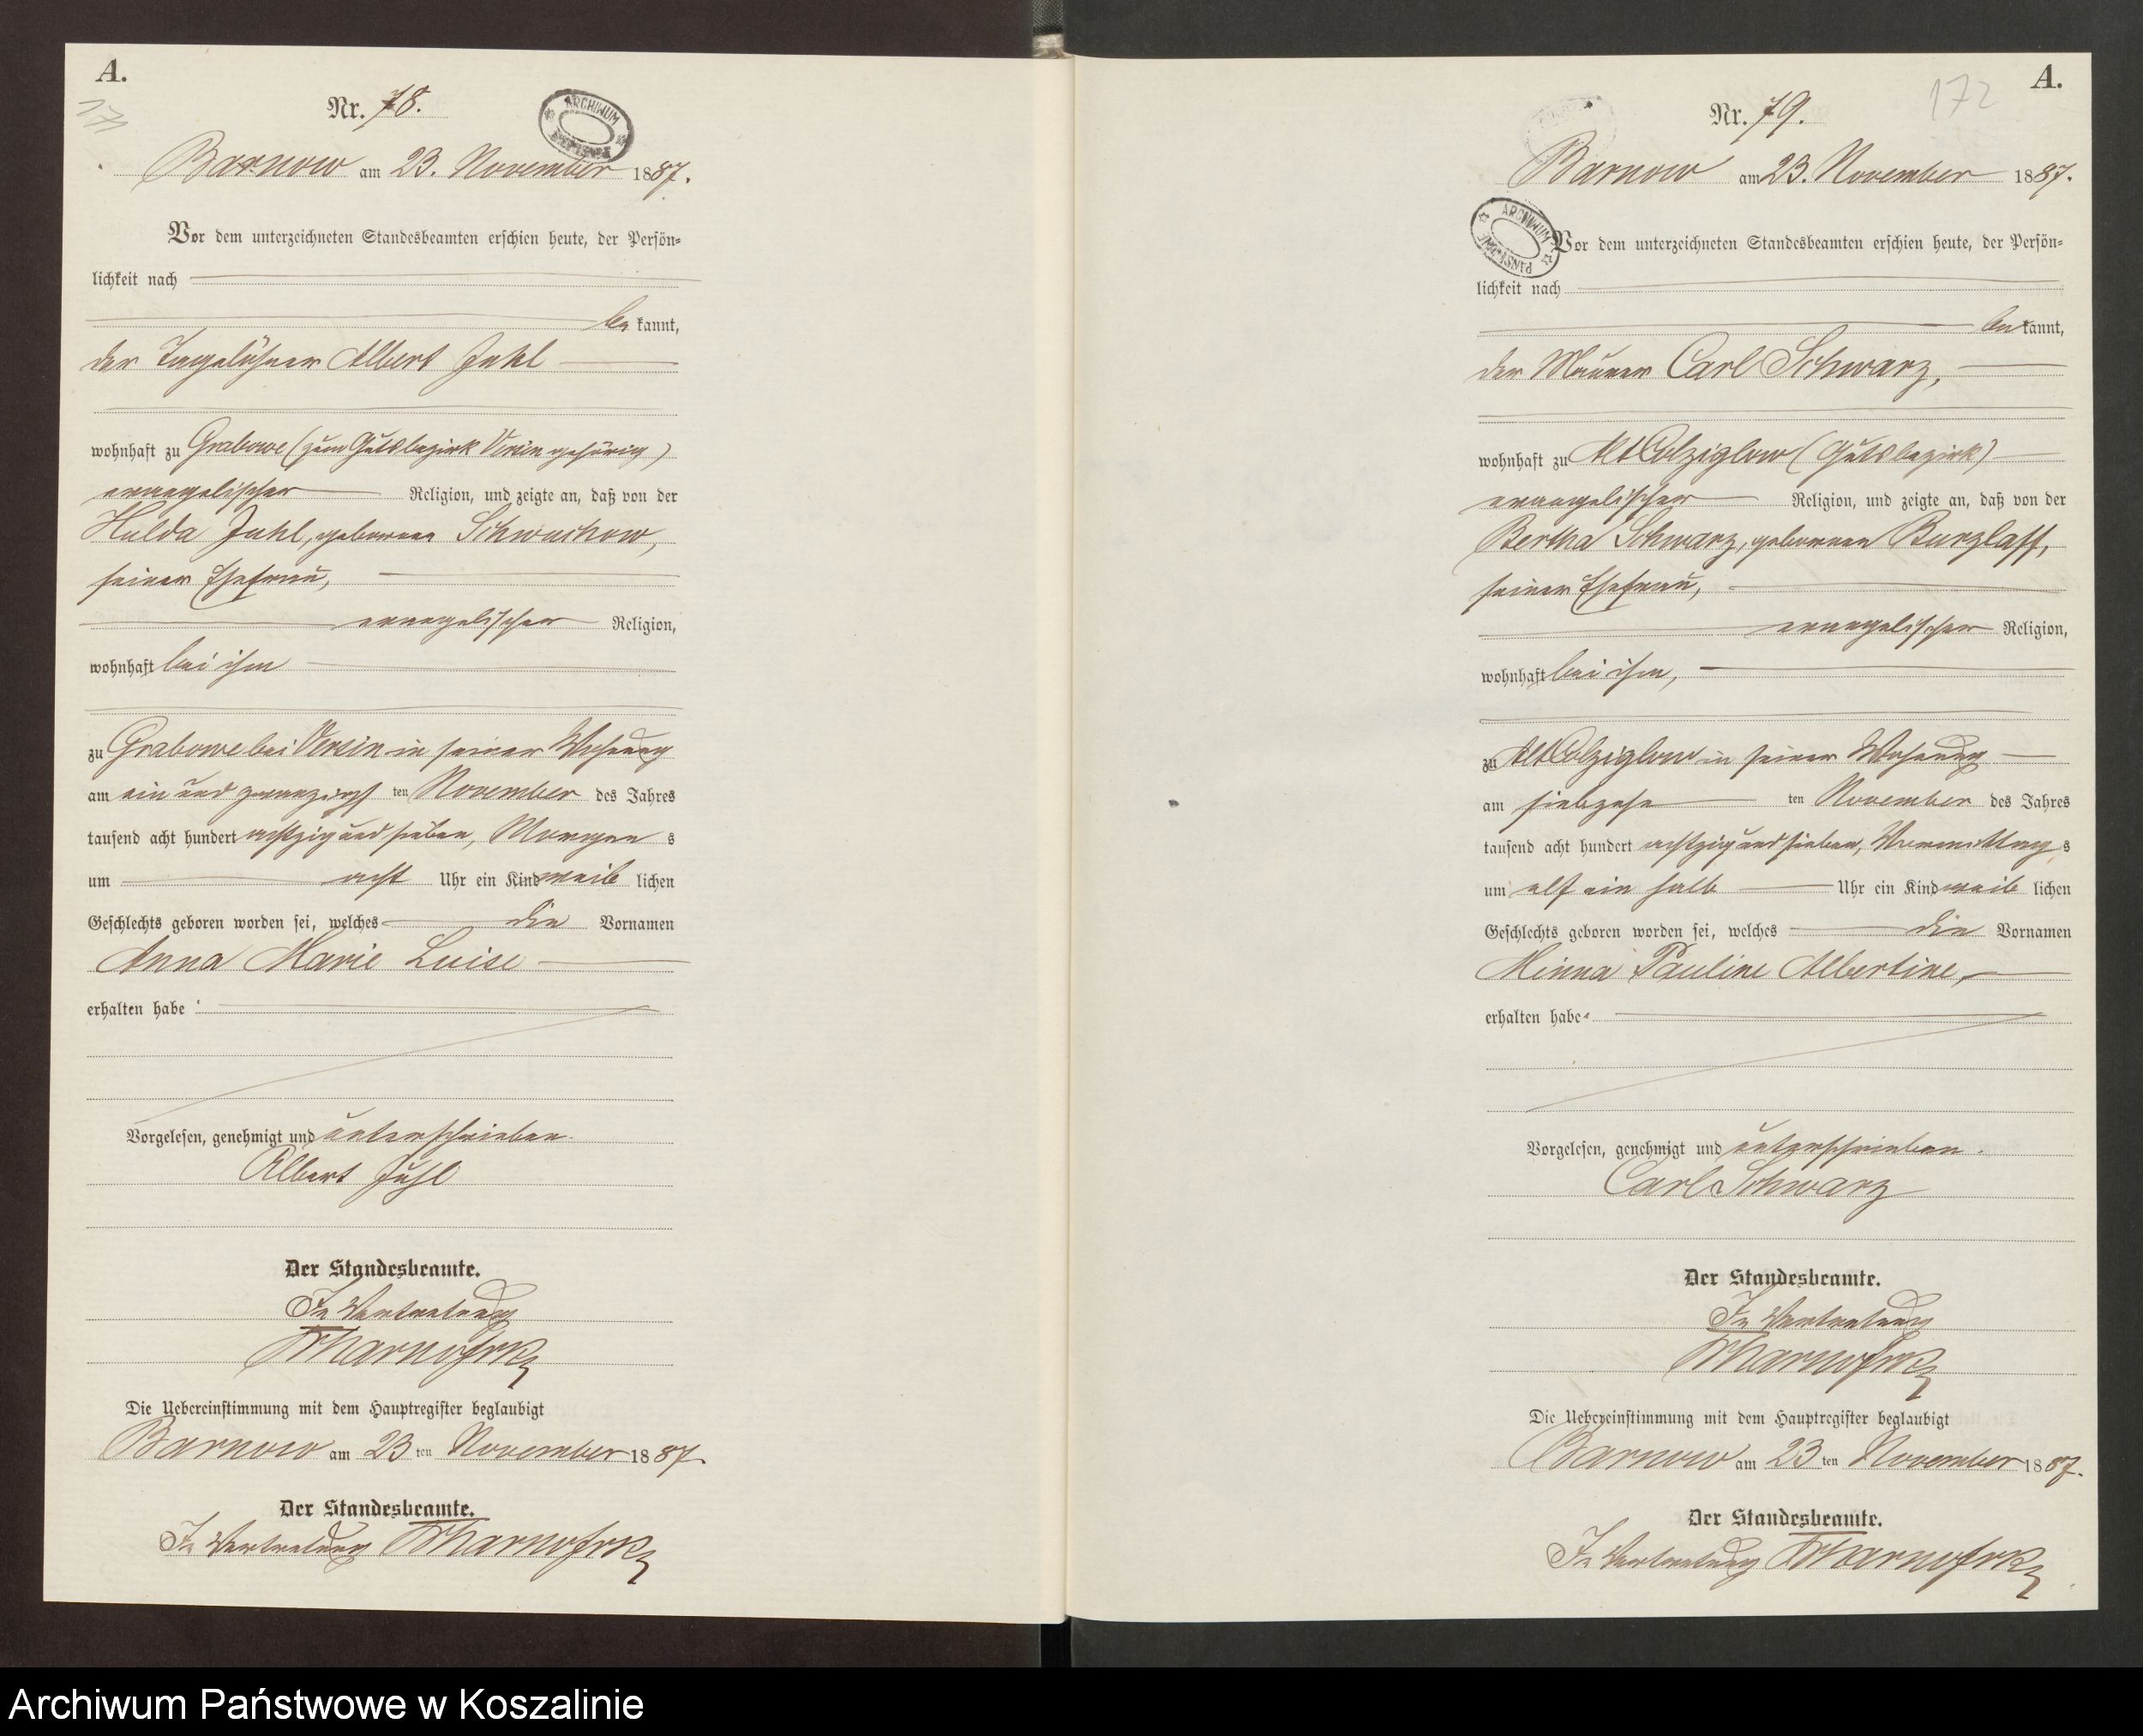 A.
171
Nr. 78.
ARCHIWUM
Barnow am 23. November 1887.
Vor dem unterzeichneten Standesbeamten erschien heute, der Persön=
lichkeit nach
be kannt,
der Tagelöhner Albert Juhl
wohnhaft zu Grabowe (zum Gutsbezirk Versin gehörig)
evangelischer Religion, und zeigte an, daß von der
Hulda Juhl, geborenen Schwuchow,
seiner Ehefrau,
evangelischer Religion,
wohnhaft bei ihm
zu Grabowe bei Versin in seiner Wohnung
am ein und zwanzigsten November des Jahres
tausend acht hundert achtzig und sieben, Morgens
um acht Uhr ein Kind weiblichen
Geschlechts geboren worden sei, welches die Vornamen
Anna Marie Luise
erhalten habe.
Vorgelesen, genehmigt und unterschrieben.
Albert Juhl
Der Standesbeamte.
In Vertretung
Die Uebereinstimmung mit dem Hauptregister beglaubigt
Barnow am 23ten November 1887.
Der Standesbeamte.
In Vertretung
A.
172
Nr. 79.
Barnow am 23. November 1887.
ARCHIWUM PAŃSTWOWE
Vor dem unterzeichneten Standesbeamten erschien heute, der Persön=
lichkeit nach
be kannt,
der Maurer Carl Schwarz,
wohnhaft zu Alt Colziglow (Gutsbezirk)
evangelischer Religion, und zeigte an, daß von der
Bertha Schwarz, geborenen Burzlaff,
seiner Ehefrau,
evangelischer Religion,
wohnhaft bei ihm,
zu Alt Colziglow in seiner Wohnung
am siebzehn ten November des Jahres
tausend acht hundert achtzig und sieben, Vormittags
um elf ein halb Uhr ein Kind weiblichen
Geschlechts geboren worden sei, welches die Vornamen
Minna Pauline Albertine,
erhalten habe.
Vorgelesen, genehmigt und unterschrieben.
Carl Schwarz
Der Standesbeamte.
In Vertretung
Die Uebereinstimmung mit dem Hauptregister beglaubigt
Barnow am 23ten November 1887.
Der Standesbeamte.
In Vertretung
Archiwum Państwowe w Koszalinie